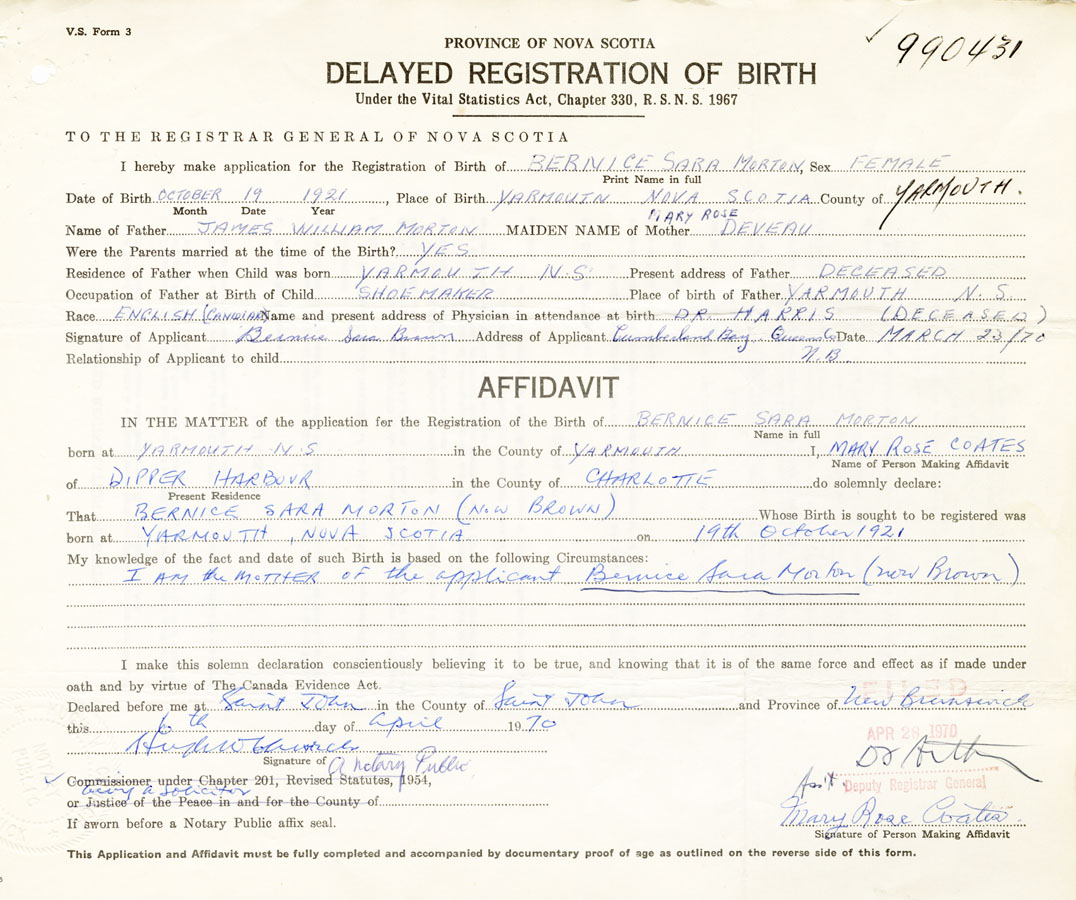 V.S. Form 3
990431
PROVINCE OF NOVA SCOTIA
DELAYED REGISTRATION OF BIRTH
Under the Vital Statistics Act, Chapter 330, R.S.N.S. 1967
TO THE REGISTRAR GENERAL OF NOVA SCOTIA
I hereby make application for the Registration of Birth of BERNICE SARA MORTON, Sex FEMALE
Print Name in full
Date of Birth OCTOBER 19 1921, Place of Birth YARMOUTH NOVA SCOTIA County of YARMOUTH.
Month Date Year
MARY ROSE
Name of Father JAMES WILLIAM MORTON MAIDEN NAME of Mother DEVEAU
Were the Parents married at the time of the Birth? YES
Residence of Father when Child was born YARMOUTH N.S. Present address of Father DECEASED
Occupation of Father at Birth of Child SHOEMAKER Place of birth of Father YARMOUTH N.S.
Race ENGLISH (CANADIAN) Name and present address of Physician in attendance at birth DR. HARRIS (DECEASED)
Signature of Applicant Bernice Sara Brown Address of Applicant Cumberland Bay Queens Co Date MARCH 23/70
N.B.
Relationship of Applicant to child
AFFIDAVIT
IN THE MATTER of the application for the Registration of the Birth of BERNICE SARA MORTON
Name in full
born at YARMOUTH N.S in the County of YARMOUTH I, MARY ROSE COATES
Name of Person Making Affidavit
of DIPPER HARBOUR in the County of CHARLOTTE do solemnly declare:
Present Residence
That BERNICE SARA MORTON (NOW BROWN) Whose Birth is sought to be registered was
born at YARMOUTH, NOVA SCOTIA on 19th October 1921
My knowledge of the fact and date of such Birth is based on the following Circumstances:
I AM the MOTHER OF the applicant Bernice Sara Morton (now Brown)
I make this solemn declaration conscientiously believing it to be true, and knowing that it is of the same force and effect as if made under
oath and by virtue of The Canada Evidence Act.
FILED
Declared before me at Saint John in the County of Saint John and Province of New Brunswick
this 6th day of April 1970
APR 28 1970
Signature of a Notary Public
Commissioner under Chapter 201, Revised Statutes, 1954,
being a solicitor
Ass't Deputy Registrar General
or Justice of the Peace in and for the County of
Mary Rose Coates
If sworn before a Notary Public affix seal.
Signature of Person Making Affidavit
This Application and Affidavit must be fully completed and accompanied by documentary proof of age as outlined on the reverse side of this form.